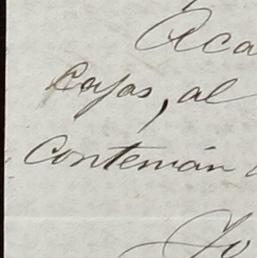 Aca
cajas, al
contenían